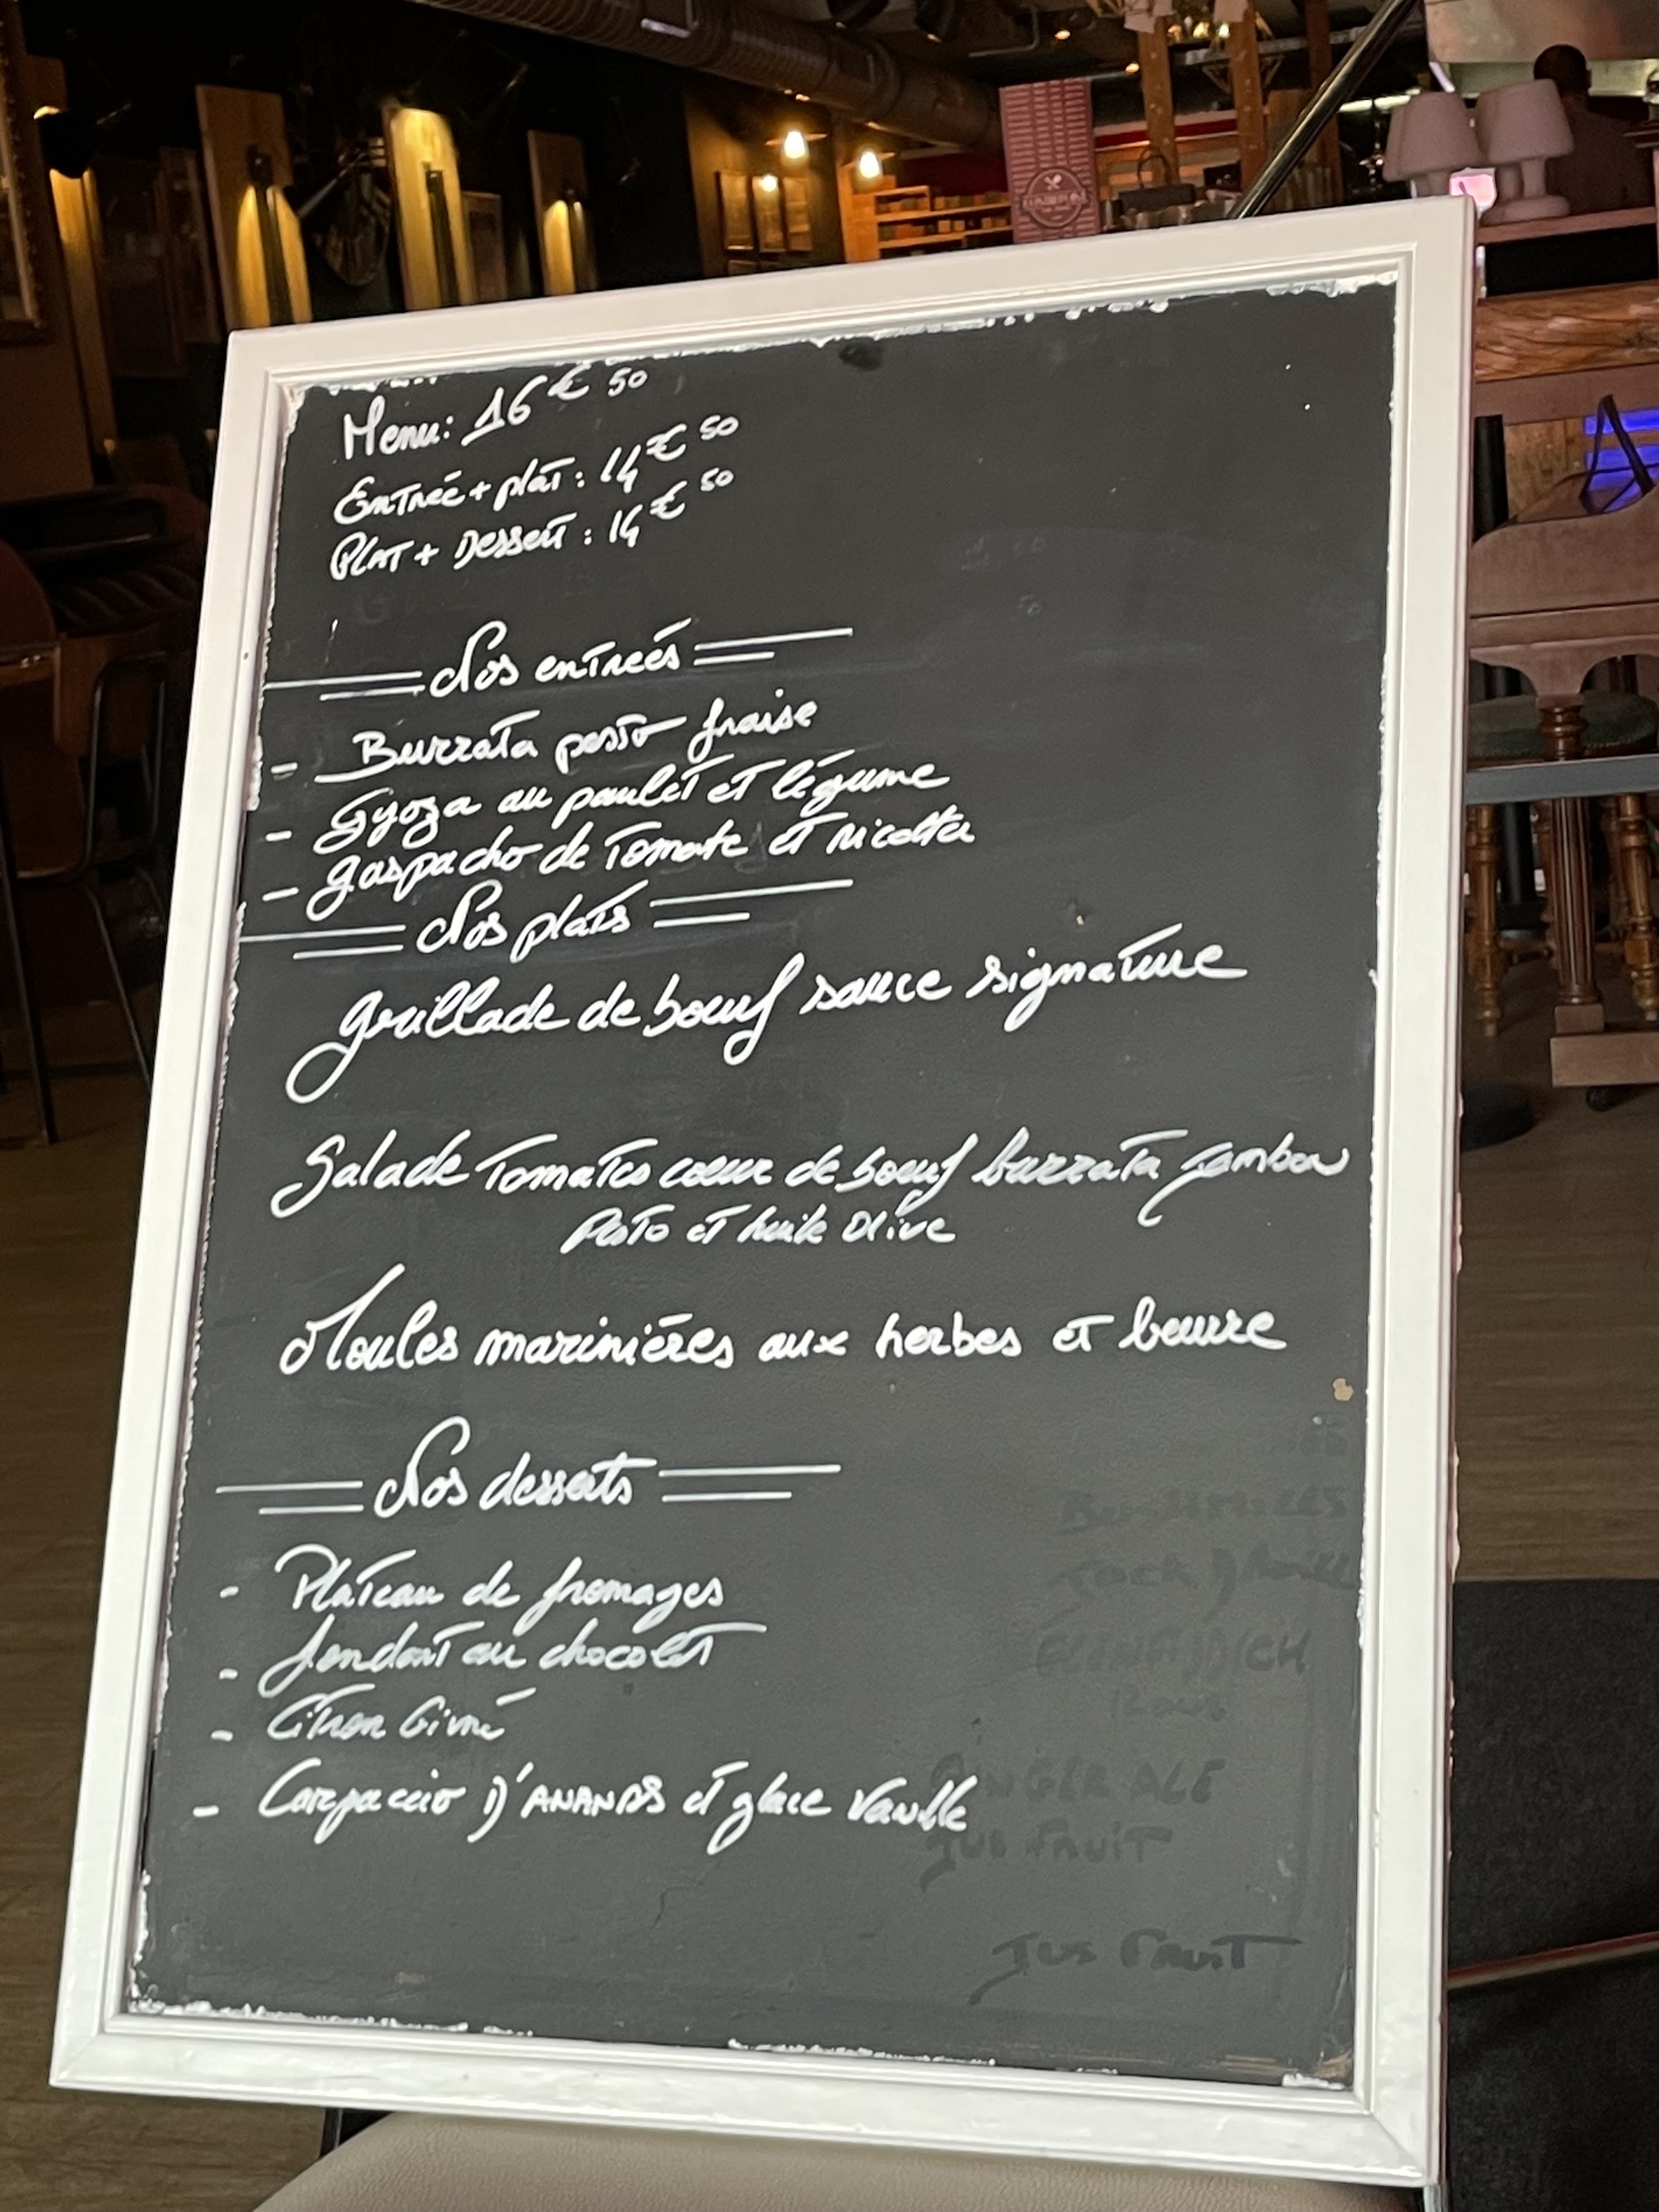 Menu: 16€50
Entrée + plat : 14€50
Plat + Dessert : 14€50
Nos entrées
- Burrata pesto fraise
- Gyoza au poulet et légume
- gaspacho de Tomate et ricotta
Nos plats
grillade de boeuf sauce signature
Salade Tomates coeur de boeuf burrata jambon
Pesto et huile olive
Moules marinières aux herbes et beurre
Nos desserts
- Plateau de fromages
- fondant au chocolat
- Citron Givré
- Carpaccio D'ANANAS et glace Vanille
GINGER ALE
Jus Fruit
Jus Fruit